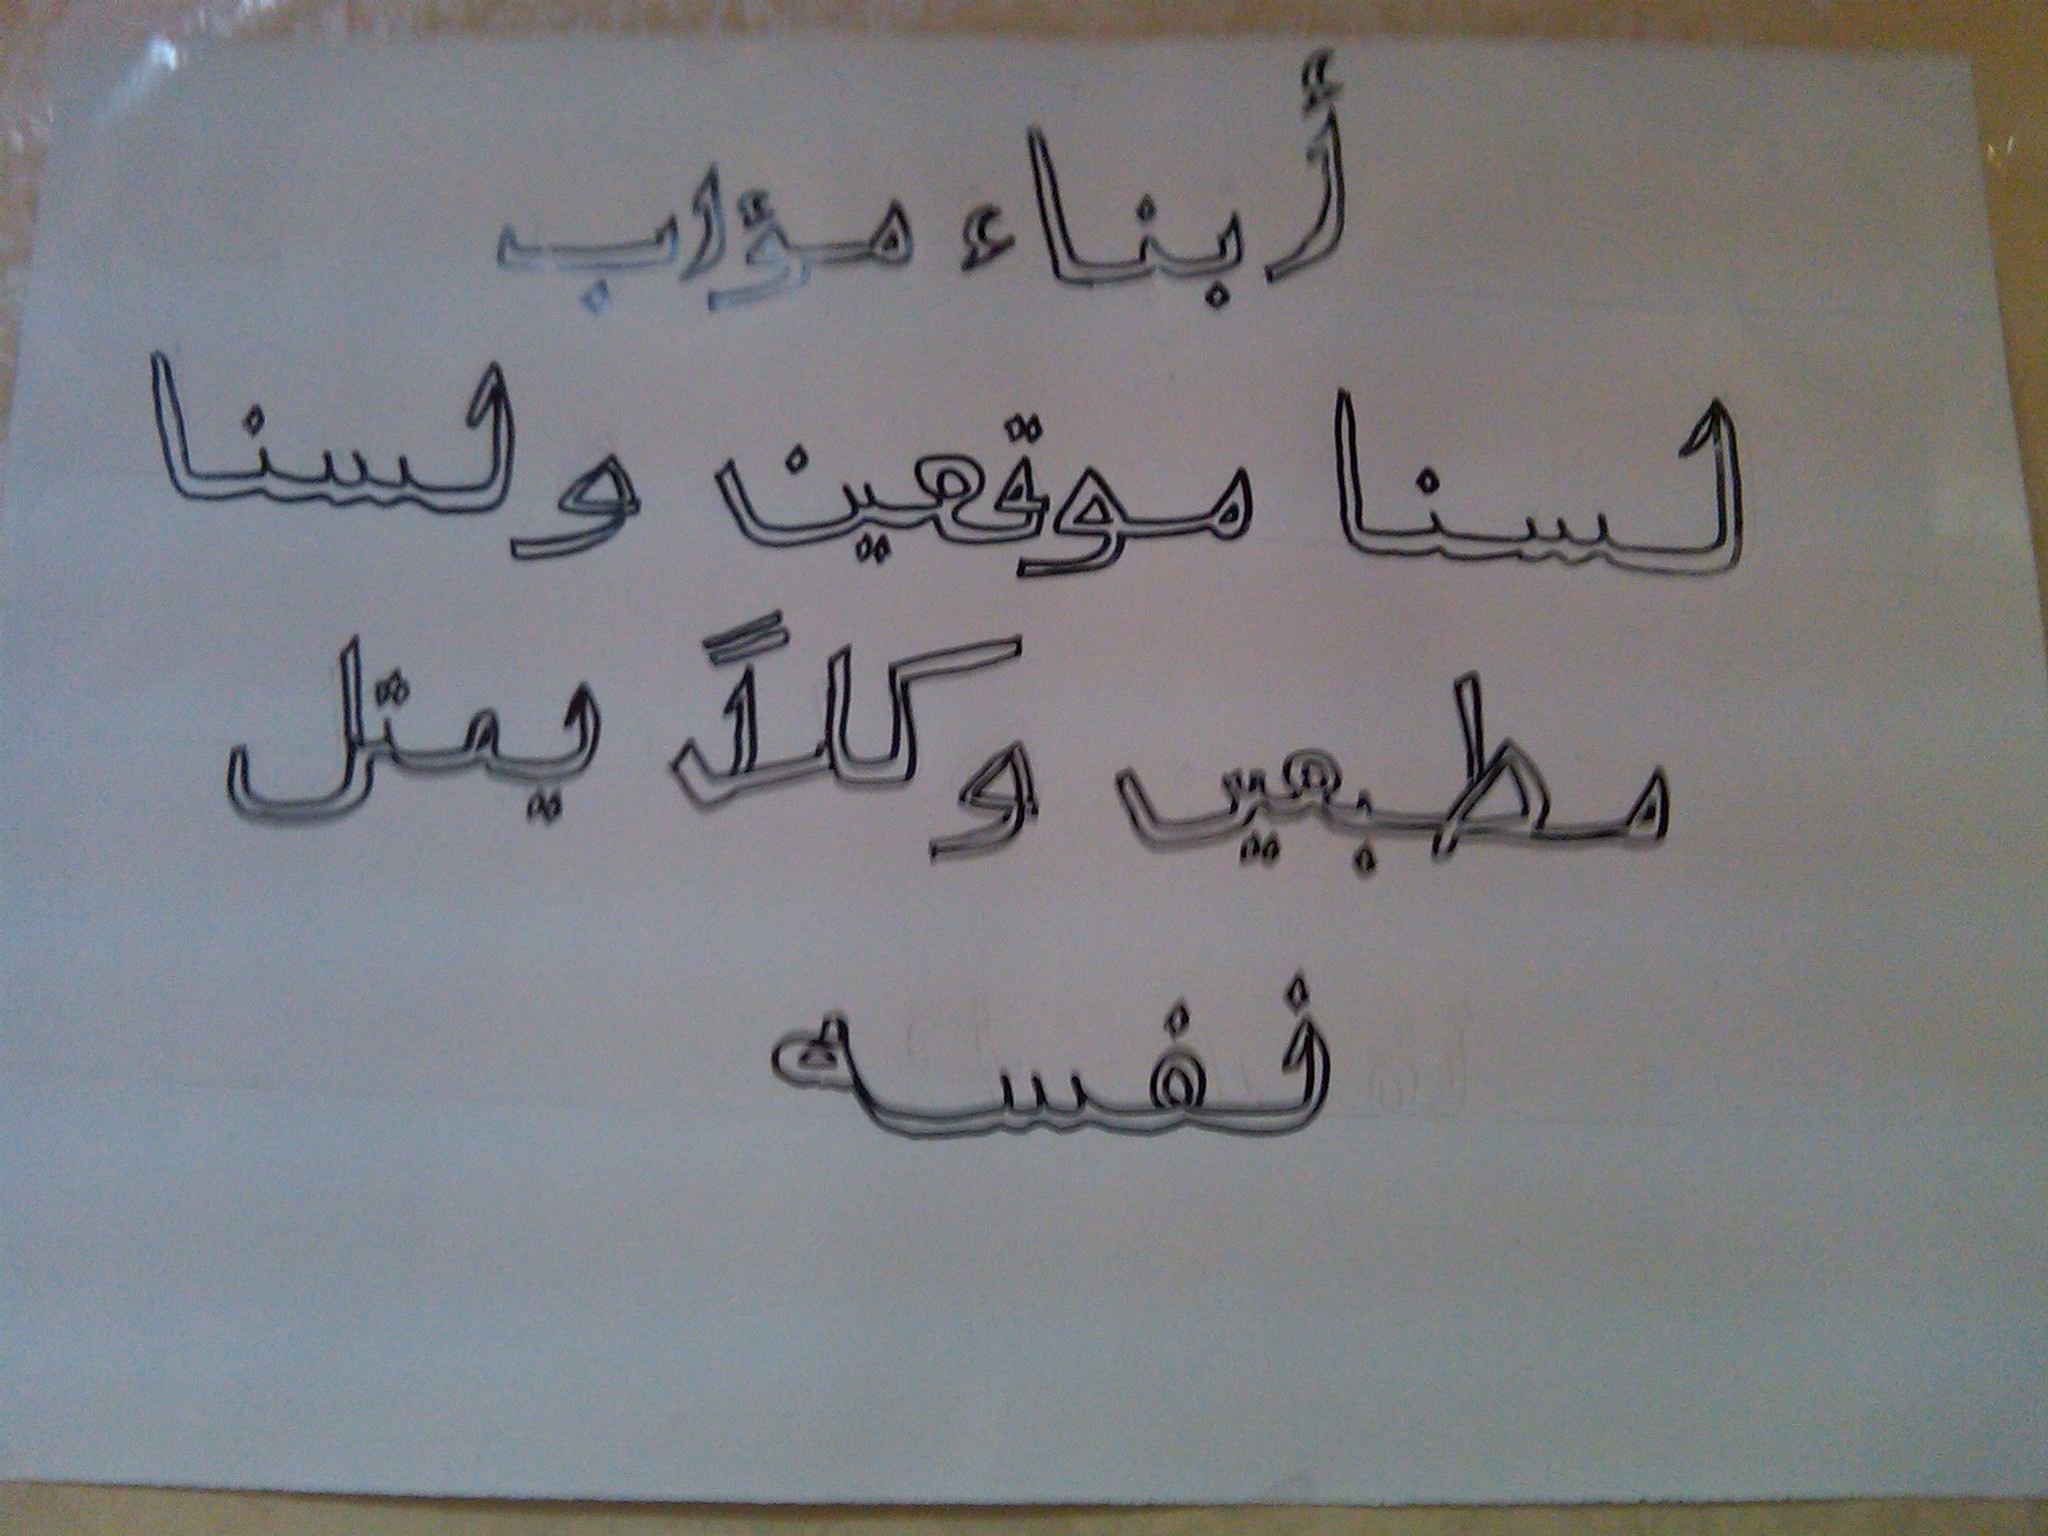 أبناء مؤاب
لسنا موقعين ولسنا
مطبعين وكلاً يمثل
نفسه